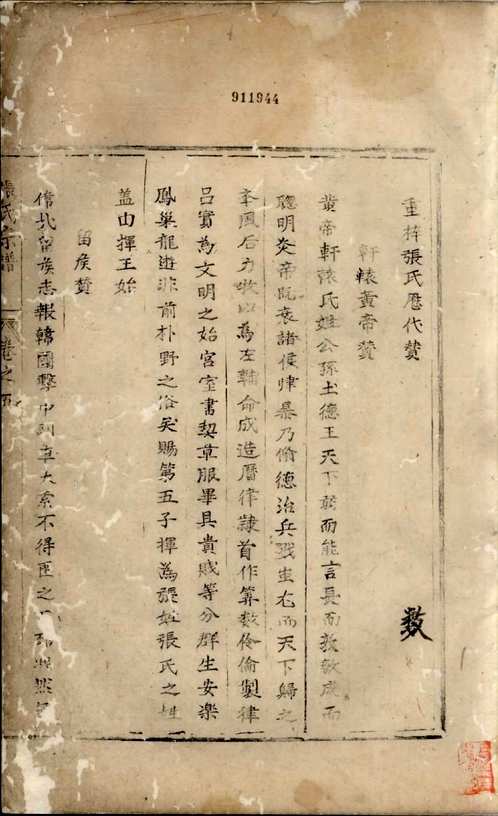 911944
重梓張氏歷代贊
軒轅黃帝贊
黃帝軒轅氏姓公孫土德王天下弱而能言長而敦敏成而
聰明炎帝既衰諸侯肆暴乃脩德治兵戮蚩尤而天下歸之
舉風后力牧以為左輔命成造曆律隸首作算數伶倫製律
呂實為文明之始宮室書契章服畢具貴賤等分群生安樂
鳳巢龍遊非前朴野之俗矣賜第五子揮為張姓張氏之姓
蓋由揮王始
留侯贊
留侯志報韓國擊中副車大索不得匿之
張氏宗譜
卷之五
敖